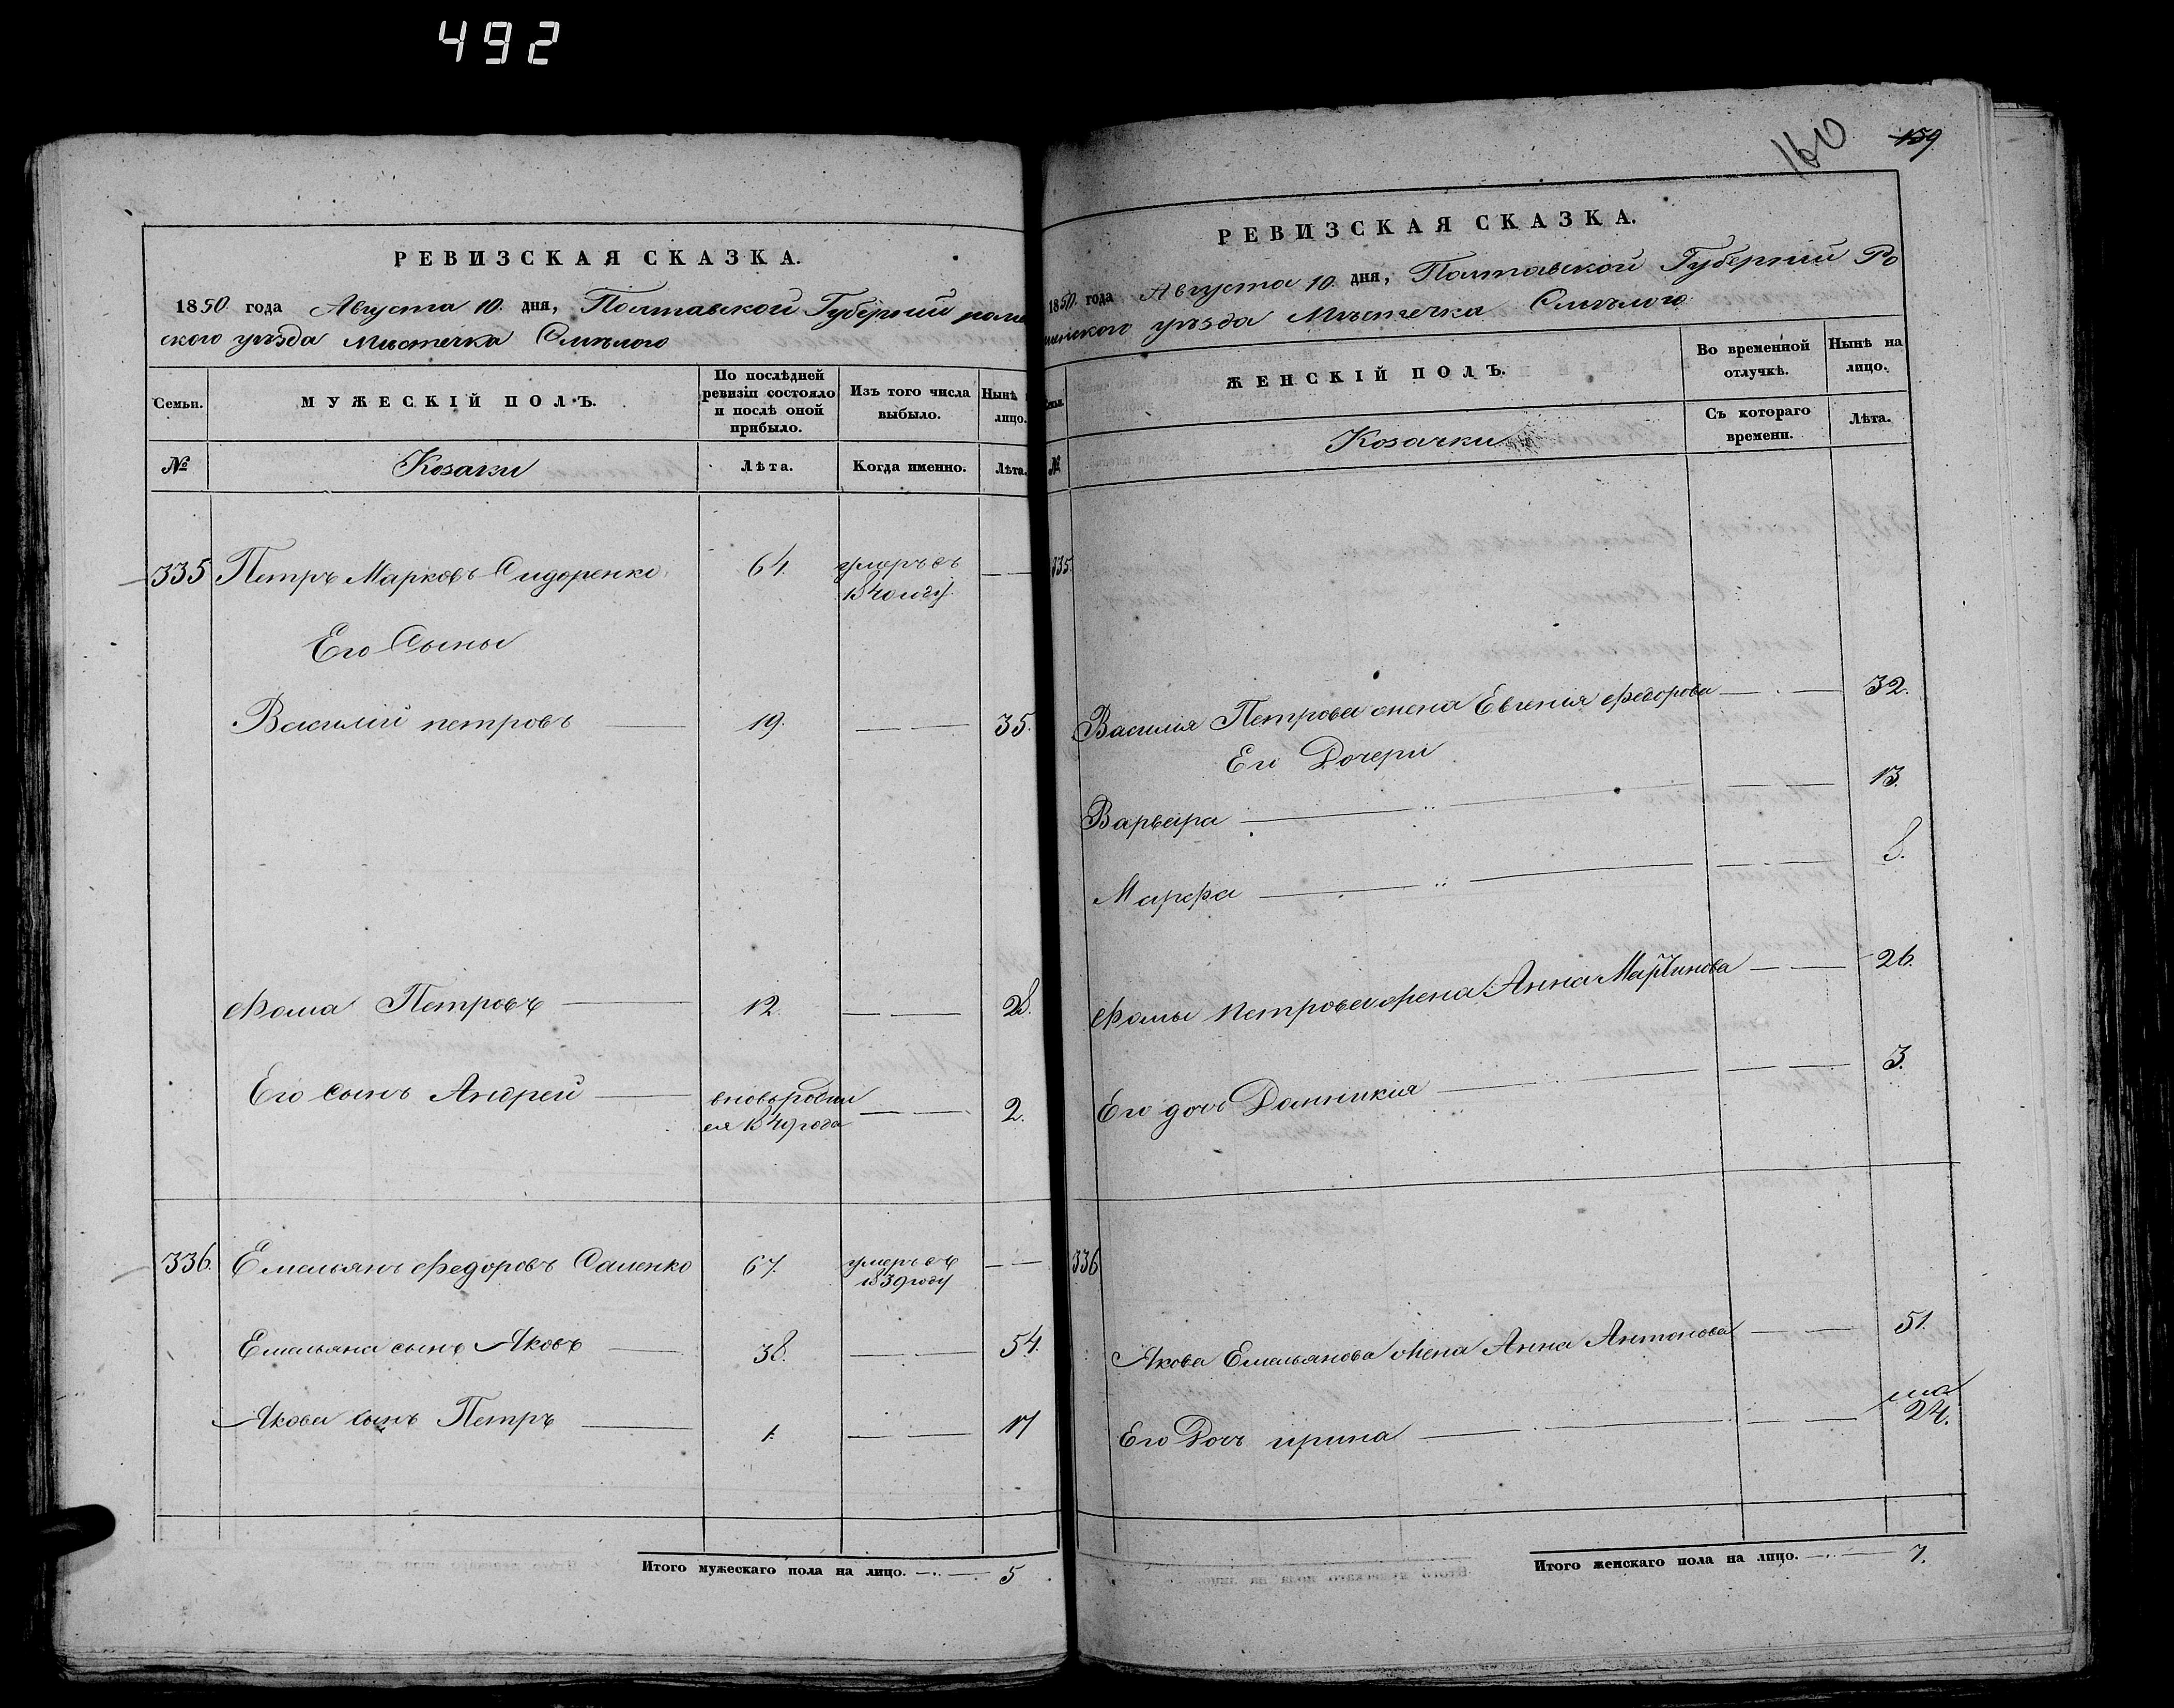 492
РЕВИЗСКАЯ СКАЗКА.
1850. года Августа 10. дня, Полтавской Губерній роме
ского уѣзда Мѣстечка Смѣлого
Семьи.
МУЖЕСКІЙ ПОЛЪ.
По послѣдней
ревизіи состояло
и послѣ оной
прибыло.
Изъ того числа
выбыло.
Нынѣ
лицо.
№
Козаки
Лѣта.
Когда именно.
Лѣта.
335 Петръ Марковъ Сидоренко 64. умеръ въ
1840 году.
Его Сыны
Василій петровъ 19. 35.
Фома Петровъ 12. 28.
Его сынъ Андрей вновьродил
ся 1849 года 2.
336. Емельянъ Федоровъ Саленко 67. умеръ въ
1839 году
Емельяна сынъ Яковъ 38. 54.
Якова сынъ Петръ 1. 17
Итого мужескаго пола на лицо. 5
160 159
РЕВИЗСКАЯ СКАЗКА.
1850. года Августа 10. дня, Полтавской Губерній Ро
менского уѣзда Мѣстечка Смѣлого
Семьи.
ЖЕНСКІЙ ПОЛЪ.
Во временной
отлучкѣ.
Нынѣ на
лицо.
№
Козачки
Съ котораго
времени.
Лѣта.
335.
Василія Петрова жена Евгенія Федорова 32.
Его Дочери
Варвара 13.
Марфа 8.
Фомы Петрова жена Анна Мартинова 26.
Его дочь Домникія 3.
336
Якова Емельянова жена Анна Антонова 51.
Его Дочь ирина 24.
Итого женскаго пола на лицо. 7.